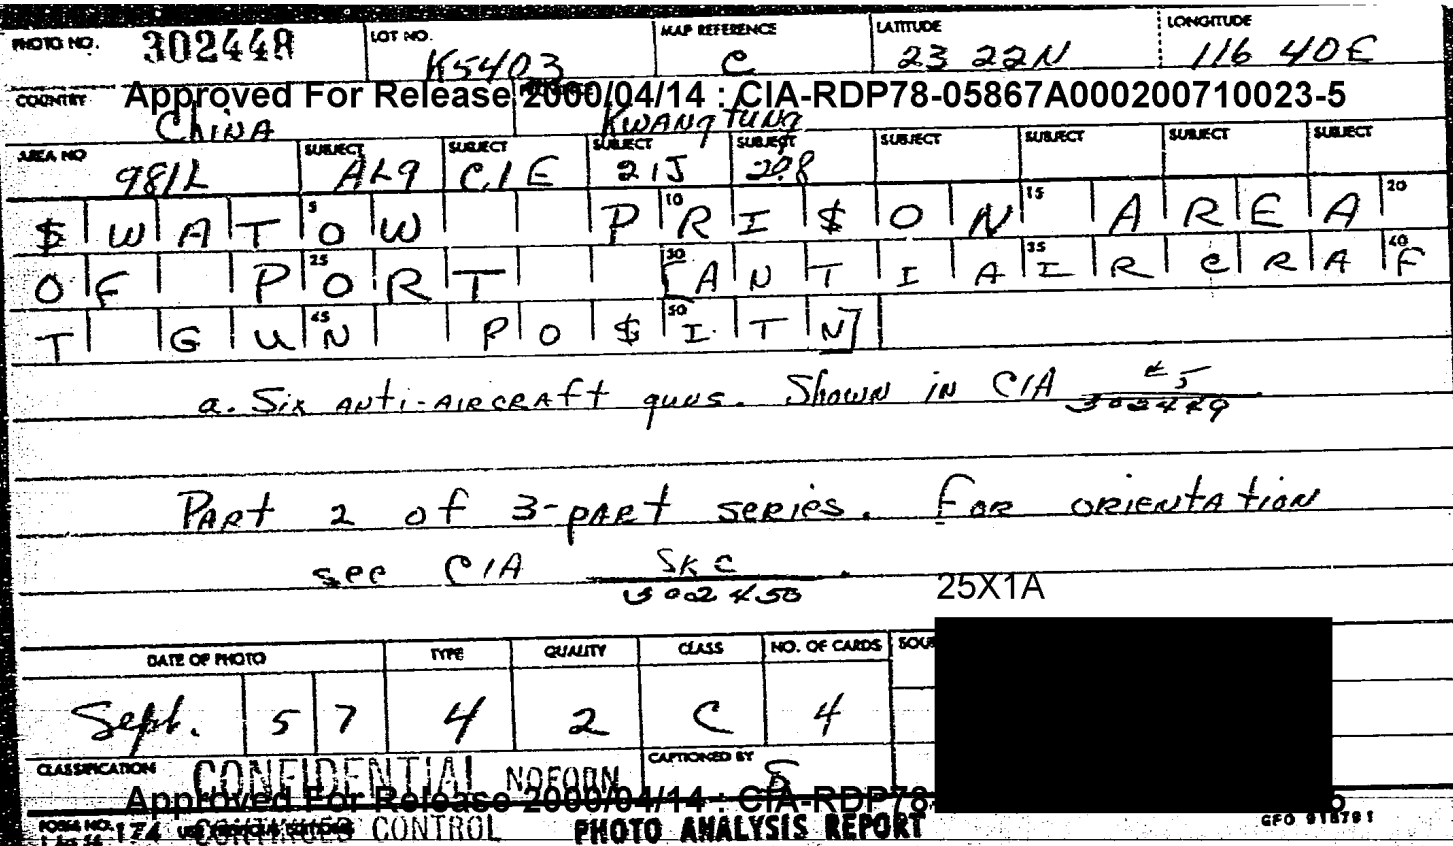 PHOTO NO. 302448 LOT NO. K5403 MAP REFERENCE C LATITUDE 23 22N LONGITUDE 116 40E
Approved For Release 2000/04/14 : CIA-RDP78-05867A000200710023-5
COUNTRY China Kwangtung
AREA NO 981L SUBJECT AL9 SUBJECT C1E SUBJECT 21J SUBJECT 208 SUBJECT SUBJECT SUBJECT SUBJECT
$WATOW PRI$ON AREA
OF PORT [ANTIAIRCRAF
T GUN PO$ITN]
a. Six anti-aircraft guns. Shown in CIA 302449
Part 2 of 3-part series. For orientation
see CIA SKC 302450.
25X1A
DATE OF PHOTO TYPE QUALITY CLASS NO. OF CARDS
Sept. 5 7 4 2 C 4
CLASSIFICATION CONFIDENTIAL NOFORN CAPTIONED BY S
Approved For Release 2000/04/14 : CIA-RDP78-
FORM NO. 174 CONTINUED CONTROL PHOTO ANALYSIS REPORT GPO 918791